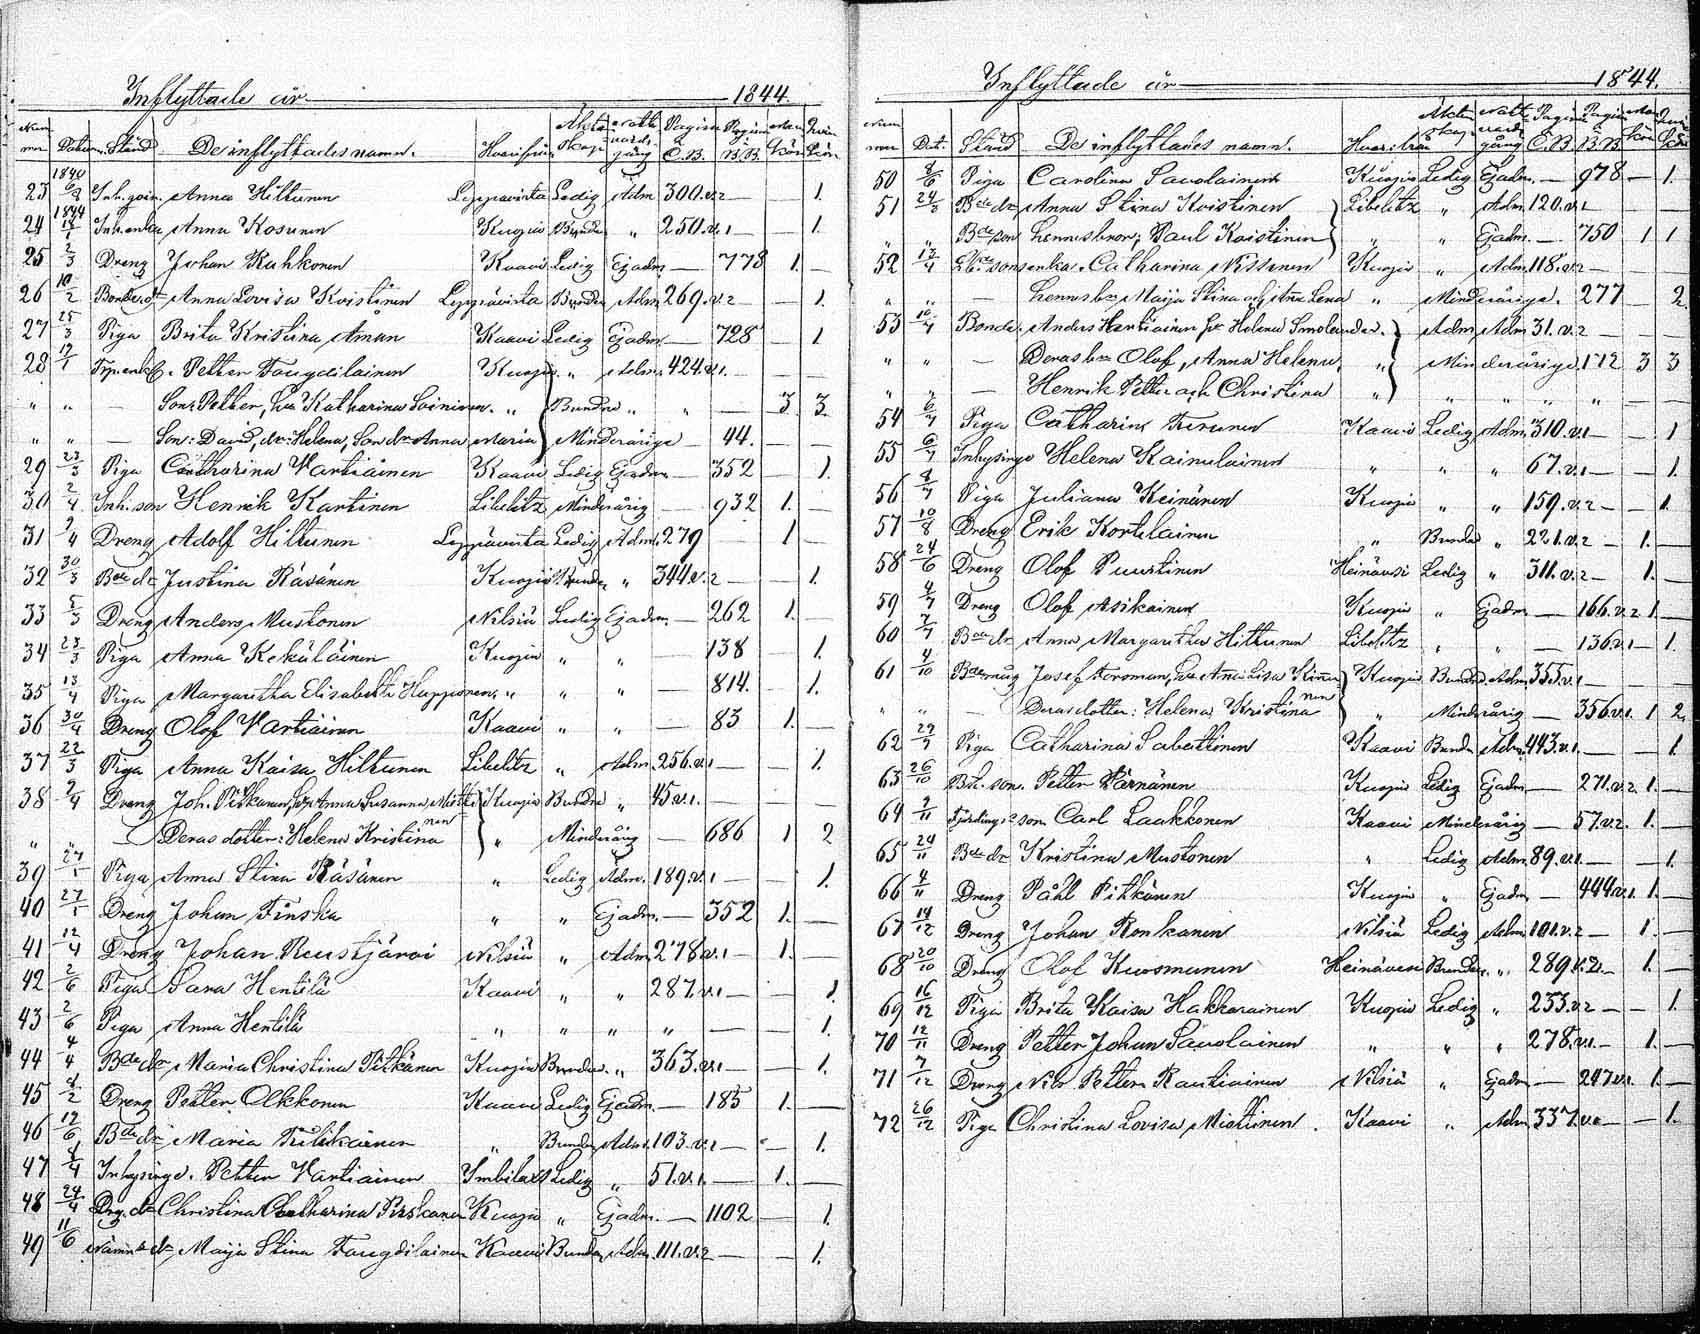 Inflyttade år 1844.
Num mer Datum. Stånd De inflyttades namn. Hvarifrån Ägta skap Natt vards gång Pagina i C.B. Pagina i B.B. Man kön Qvin kön
1840
23 6/8 Inh. Anna Hiltunen Leppävirta Ledig Adm 300.v.2 — 1.
1844
24 Inh.enka Anna Kosunen Kuopio Bunden " 250.v.1 — 1
25 2/3 Dreng Johan Kuhkonen Kaavi Ledig Ej adm — 778 1. —
26 10/2 Bonde dr Anna Lovisa Koistinen Leppävirta Bunden Adm 269.v.2 — 1.
27 25/3 Piga Brita Kristina Åman Kaavi Ledig Ej adm — 728 — 1
28 17/1 Petter Taugdilainen Kuopio " Adm. 424.v.1. —
" " — Son: Petter, hu Katharina Soininen. " Bundna " " — 3 3.
" " — Son: David, dr: Helena, Son dr Anna Maria Minderåriga — 44. —
29 23/3 Piga Catharina Vartiainen Kaavi Ledig Ej adm — 352 — 1.
30 2/4 Inh. son Henrik Kartinen Libelitz Minderårig — 932 1.
31 9/4 Dreng Adolf Hiltunen Leppävirta Ledig Adm. 279 1 —
32 30/3 Bde dr Justina Räsänen Kuopio Bunden " 344.v.2 — 1.
33 5/3 Dreng Anders Mustonen Nilsiä Ledig Ej adm — 262 1. —
34 23/3 Piga Anna Kekäläinen Kuopio " " — 138 — 1.
35 13/4 Piga Margaretha Elisabeth Hupponen, " " " — 814. 1.
36 30/4 Dreng Olof Vartiainen Kaavi " " — 83 1. —
37 22/3 Piga Anna Kaisa Hiltunen Libelitz " Adm. 256.v.1 — 1.
38 9/4 Dreng Joh. Pitkänen, hu Anna Susanna Miet Kuopio Bundna " 45.v.1. —
nen
" " — Deras dotter: Helena Kristina " Minderårig — 686 1 2
39 27/1 Piga Anna Stina Räsänen " Ledig Adm. 189.v.1 — 1.
40 27/1 Dreng Johan Finska " " Ej adm. — 352 1. —
41 12/4 Dreng Johan Reustjärvi Nilsiä " Adm 278.v.1 — 1. —
42 2/6 Piga Sara Hentilä Kaavi " " 287.v.1 — 1
43 2/6 Piga Anna Hentilä " " " " — 1.
44 4/4 Bde dr Maria Christina Pitkänen Kuopio Bunden " 363.v.1 — 1.
45 4/2 Dreng Petter Olkkonen Kaavi Ledig Ej adm. — 185 1. —
46 17/6 Bde dr Maria " Bunden Adm. 103.v.1 — 1.
47 8/4 Inhysinge. Petter Vartiainen Ledig " 51.v.1. — 1. —
48 24/4 Drg. dr Christina Catharina Pirskanen Kuopio " Ej adm. — 1102 — 1.
49 11/6 Nämn dr Maija Stina Taugdilainen Kaavi Bunden Adm. 111.v.2 — 1.
Inflyttade år 1844.
Num mer Dat. Stånd De inflyttades namn. Hvarifrån Äkten skap Natt vards gång Pagina i C.B. Pagina i B.B. Man kön Qvin kön
50 8/6 Piga Carolina Savolainen Kuopio Ledig Ej adm. — 978 — 1.
51 24/3 Bde dr Anna Stina Koistinen Libelitz " Adm. 120.v.1 —
" " Bde son hennes bror; Paul Koistinen " " Ej adm. — 750 1 1
52 13/4 sonsenka. Catharina Nissinen Kuopio " Adm. 118.v.2 —
" " — hennes br Maija Stina och Ana Lena " Minderåriga. 277 — 2
53 10/4 Bonde. Anders Hartiainen hu Helena Smolander. Adm Adm. 31.v.2 —
" " — Deras br Olof, Anna Helena, " Minderåriga. 172 3 3
" " — Henrik Petter och Christina " " " " " —
54 6/7 Piga Catharina Tirunen Kaavi Ledig Adm. 310.v.1 — 1
55 6/7 Inhysinge Helena Kainulainen " " " 67.v.1 — 1.
56 8/7 Piga Juliana Keinänen Kuopio " " 159.v.2 — 1.
57 10/8 Dreng Erik Kortelainen " Bunden " 221.v.2 — 1. —
58 24/6 Dreng Olof Puustinen Heinävesi Ledig " 311.v.2 — 1. —
59 4/7 Dreng Olof Asikainen Kuopio " Ej adm. — 166.v.2 1. —
60 7/7 Bde dr Anna Margaretha Hiltunen Libelitz " " — 136.v.1 — 1.
61 4/10 Bde måg Josef Forsman, hu Ana Lisa Kinu Kuopio Bundna Adm. 355.v.1 —
nen
" " — Deras dotter: Helena Kristina " Minderårig — 356.v.1. 1 2.
62 29/7 Piga Catharina Sabettinen Kaavi Bunden Adm. 443.v.1. — 1.
63 26/10 Bde. son. Petter Pärnänen Kuopio Ledig Ej adm — 271.v.2 1. —
64 9/11 Fjerdings son Carl Laakkonen Kaavi Minderårig — 57.v.2. 1. —
65 24/11 Bde dr Kristina Mustonen " Ledig Adm. 89.v.1. — 1.
66 4/11 Dreng Påhl Pitkänen Kuopio " Ej adm. — 444.v.1. 1. —
67 14/12 Dreng Johan Ronkanen Nilsiä Ledig Adm. 101.v.2 — 1. —
68 20/10 Dreng Olof Kuosmanen Heinävesi Bunden " 289.v.2. — 1. —
69 16/12 Piga Brita Kaisa Hakkarainen Kuopio Ledig " 233.v.2 — 1.
70 12/11 Dreng Petter Johan Savolainen " " " 278.v.1. — 1. —
71 7/12 Dreng Nils Petter Rautiainen Nilsiä " Ej adm — 247.v.1. 1. —
72 26/12 Piga Christina Lovisa Miettinen. Kaavi " Adm. 337.v. — 1.